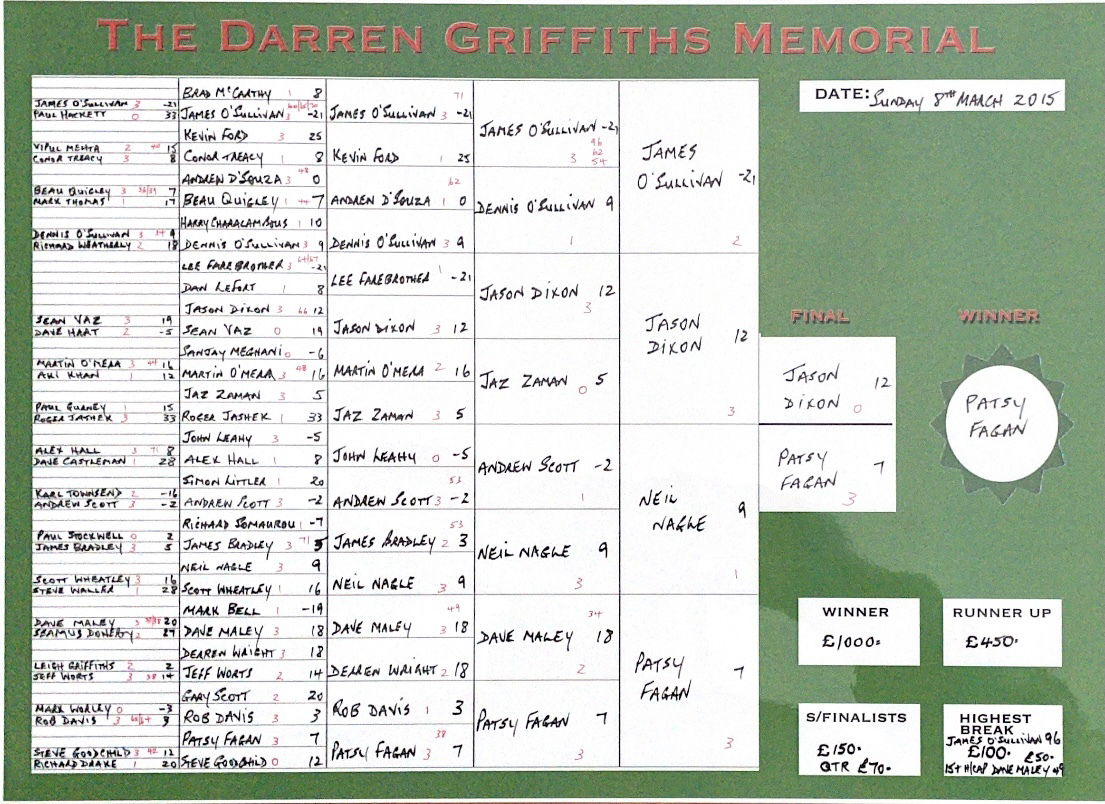 THE DARREN GRIFFITHS MEMORIAL
DATE: SUNDAY 8TH MARCH 2015
JAMES O'SULLIVAN 3 -21
PAUL HACKETT 0 33
VIPUL MEHTA 2 40 15
CONOR TREACY 3 8
BEAU QUIGLEY 3 36/39 7
MARK THOMAS 1 17
DENNIS O'SULLIVAN 3 34 9
RICHARD WEATHERLY 2 18
SEAN VAZ 3 19
DAVE HART 2 -5
MARTIN O'MERA 3 44 16
AKI KHAN 1 12
PAUL GURNEY 1 15
ROGER JASHEK 3 33
ALEX HALL 3 71 8
DAVE CASTLEMAN 1 28
KARL TOWNSEND 2 -16
ANDREW SCOTT 3 -2
PAUL STOCKWELL 0 2
JAMES BRADLEY 3 5
SCOTT WHEATLEY 3 16
STEVE WALLER 1 28
DAVE MALEY 3 20
SEAMUS DOHERTY 2 27
LEIGH GRIFFITHS 2 2
JEFF WORTS 3 38 14
MARK WORLEY 0 -3
ROB DAVIS 3 3
STEVE GOODCHILD 3 42 12
RICHARD DRAKE 1 20
BRAD McCARTHY 1 8
JAMES O'SULLIVAN 3 -21
KEVIN FORD 3 25
CONOR TREACY 1 8
ANDREN D'SOUZA 3 48 0
BEAU QUIGLEY 1 44 7
HARRY CHARALAMBOUS 1 10
DENNIS O'SULLIVAN 3 9
LEE FAREBROTHER 3 64/67 -21
DAN LEFORT 1 8
JASON DIXON 3 66 12
SEAN VAZ 0 19
SANJAY MEGHANI 0 -6
MARTIN O'MERA 3 48 16
JAZ ZAMAN 3 5
ROGER JASHEK 1 33
JOHN LEAHY 3 -5
ALEX HALL 1 8
SIMON LITTLER 1 20
ANDREW SCOTT 3 -2
RICHARD SOMAUROU 1 -7
JAMES BRADLEY 3 71
NEIL NAGLE 3 9
SCOTT WHEATLEY 1 16
MARK BELL 1 -19
DAVE MALEY 3 18
DERREN WRIGHT 3 18
JEFF WORTS 2 14
GARY SCOTT 2 20
ROB DAVIS 3 3
PATSY FAGAN 3 7
STEVE GOODCHILD 0 12
71
JAMES O'SULLIVAN 3 -21
KEVIN FORD 1 25
62
ANDREN D'SOUZA 1 0
DENNIS O'SULLIVAN 3 9
LEE FAREBROTHER 1 -21
JASON DIXON 3 12
MARTIN O'MERA 2 16
JAZ ZAMAN 3 5
JOHN LEAHY 0 -5
53
ANDREW SCOTT 3 -2
53
JAMES BRADLEY 2 3
NEIL NAGLE 3 9
49
DAVE MALEY 3 18
DERREN WRIGHT 2 18
ROB DAVIS 1 3
38
PATSY FAGAN 3 7
JAMES O'SULLIVAN -21
3 96
62
54
DENNIS O'SULLIVAN 9
1
JASON DIXON 12
3
JAZ ZAMAN 0 5
ANDREW SCOTT -2
1
NEIL NAGLE 9
3
34
DAVE MALEY 18
2
PATSY FAGAN 7
3
JAMES
O'SULLIVAN -21
2
JASON
DIXON 12
3
NEIL
NAGLE 9
1
PATSY
FAGAN 7
3
FINAL
JASON 12
DIXON 0
PATSY 7
FAGAN
3
WINNER
PATSY
FAGAN
WINNER
£1000=
RUNNER UP
£450.
S/FINALISTS
£150.
QTR £70-
HIGHEST
BREAK
JAMES O'SULLIVAN 96
£100. £50-
15+ H/CAP DAVE MALEY 49